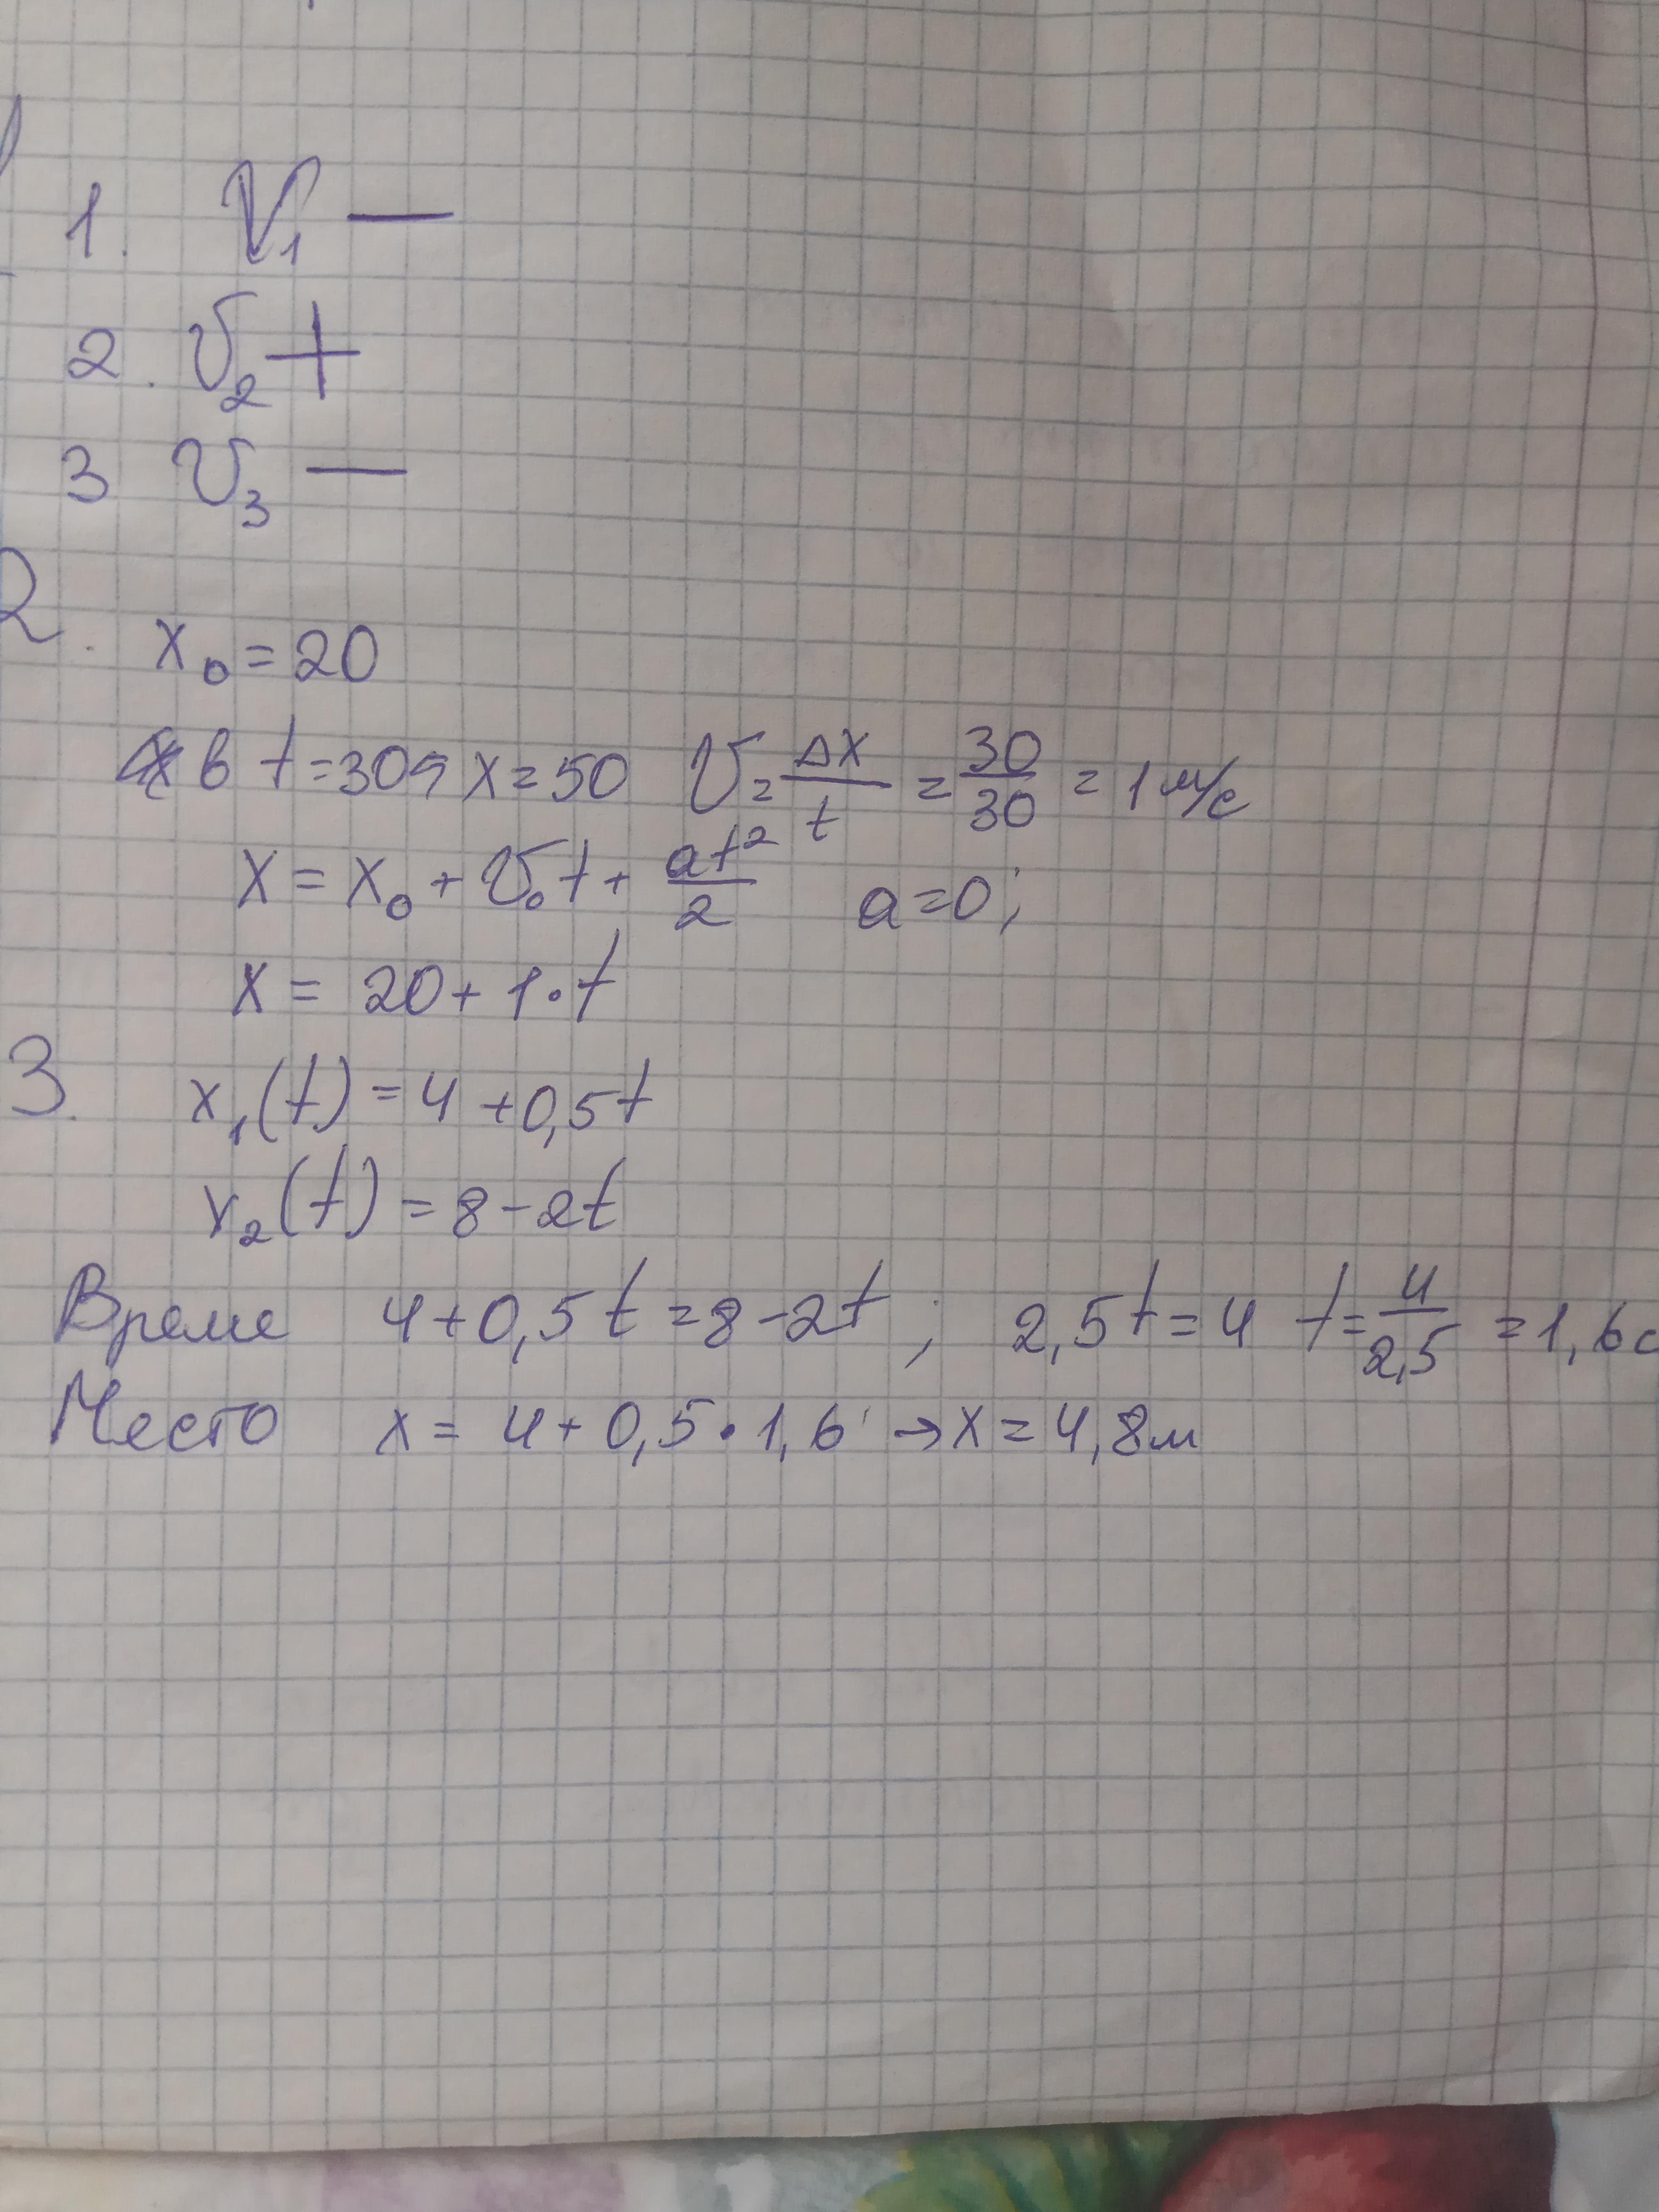 1. V₁ —
2. V₂ +
3 V₃ —
2. x₀ = 20
в t = 30 x = 50 V = Δx/t = 30/30 = 1 м/с
x = x₀ + V₀t + at²/2 a = 0;
x = 20 + 1·t
3. x₁(t) = 4 + 0,5t
x₂(t) = 8 - 2t
Време 4 + 0,5t = 8 - 2t ; 2,5t = 4 t = 4/2,5 = 1,6с
Место x = 4 + 0,5·1,6 → x = 4,8м